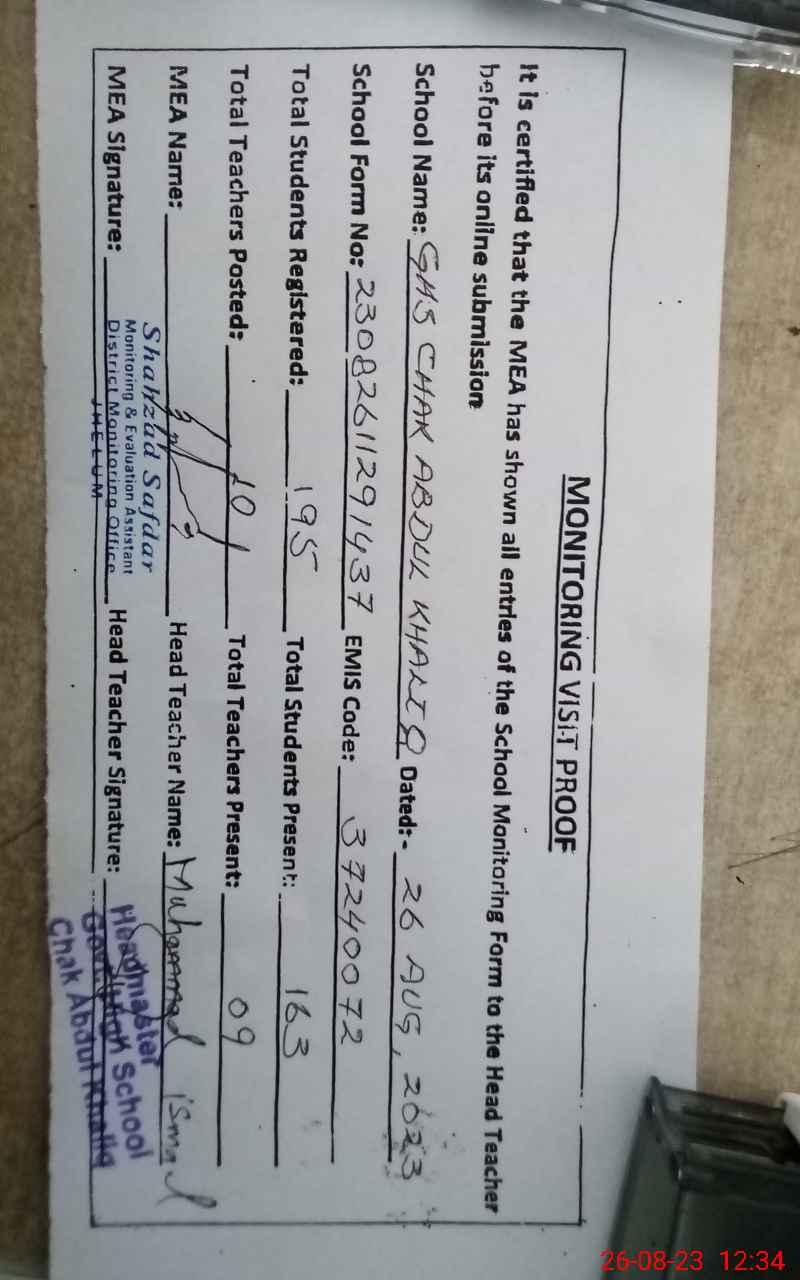 MONITORING VISIT PROOF
It is certified that the MEA has shown all entries of the School Monitoring Form to the Head Teacher
before its online submission
School Name: GHS CHAK ABDUL KHALIQ Dated:- 26 AUG, 2023
School Form No: 23082611291437 EMIS Code: 37240072
Total Students Registered: 195 Total Students Present: 163
Total Teachers Posted: 10 Total Teachers Present: 09
MEA Name: Shahzad Safdar Head Teacher Name: Muhammad ismail
Monitoring & Evaluation Assistant
MEA Signature: District Monitoring Office Head Teacher Signature: Headmaster
JHELUM
Govt. High School
Chak Abdul Khaliq
26-08-23 12:34